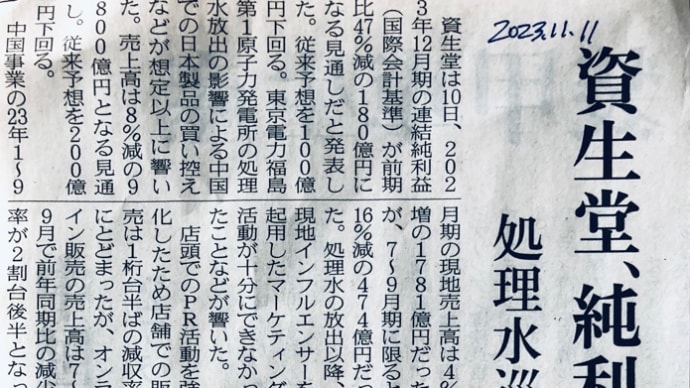 2023.11.11
資生堂、純利
処理水巡
資生堂は10日、202
3年12月期の連結純利益
（国際会計基準）が前期
比47％減の180億円に
なる見通しだと発表し
た。従来予想を100億
円下回る。東京電力福島
第1原子力発電所の処理
水放出の影響による中国
での日本製品の買い控え
などが想定以上に響い
た。売上高は8％減の9
800億円となる見通
し。従来予想を200億
円下回る。
中国事業の23年1〜9
月期の現地売上高は4％
増の1781億円だった
が、7〜9月期に限ると
16％減の474億円だっ
た。処理水の放出以降、
現地インフルエンサーを
起用したマーケティング
活動が十分にできなかっ
たことなどが響いた。
店頭でのPR活動を強
化したため店舗での販
売は1桁台半ばの減収率
にとどまったが、オンラ
イン販売の売上高は7〜
9月で前年同期比の減少
率が2割台後半となっ